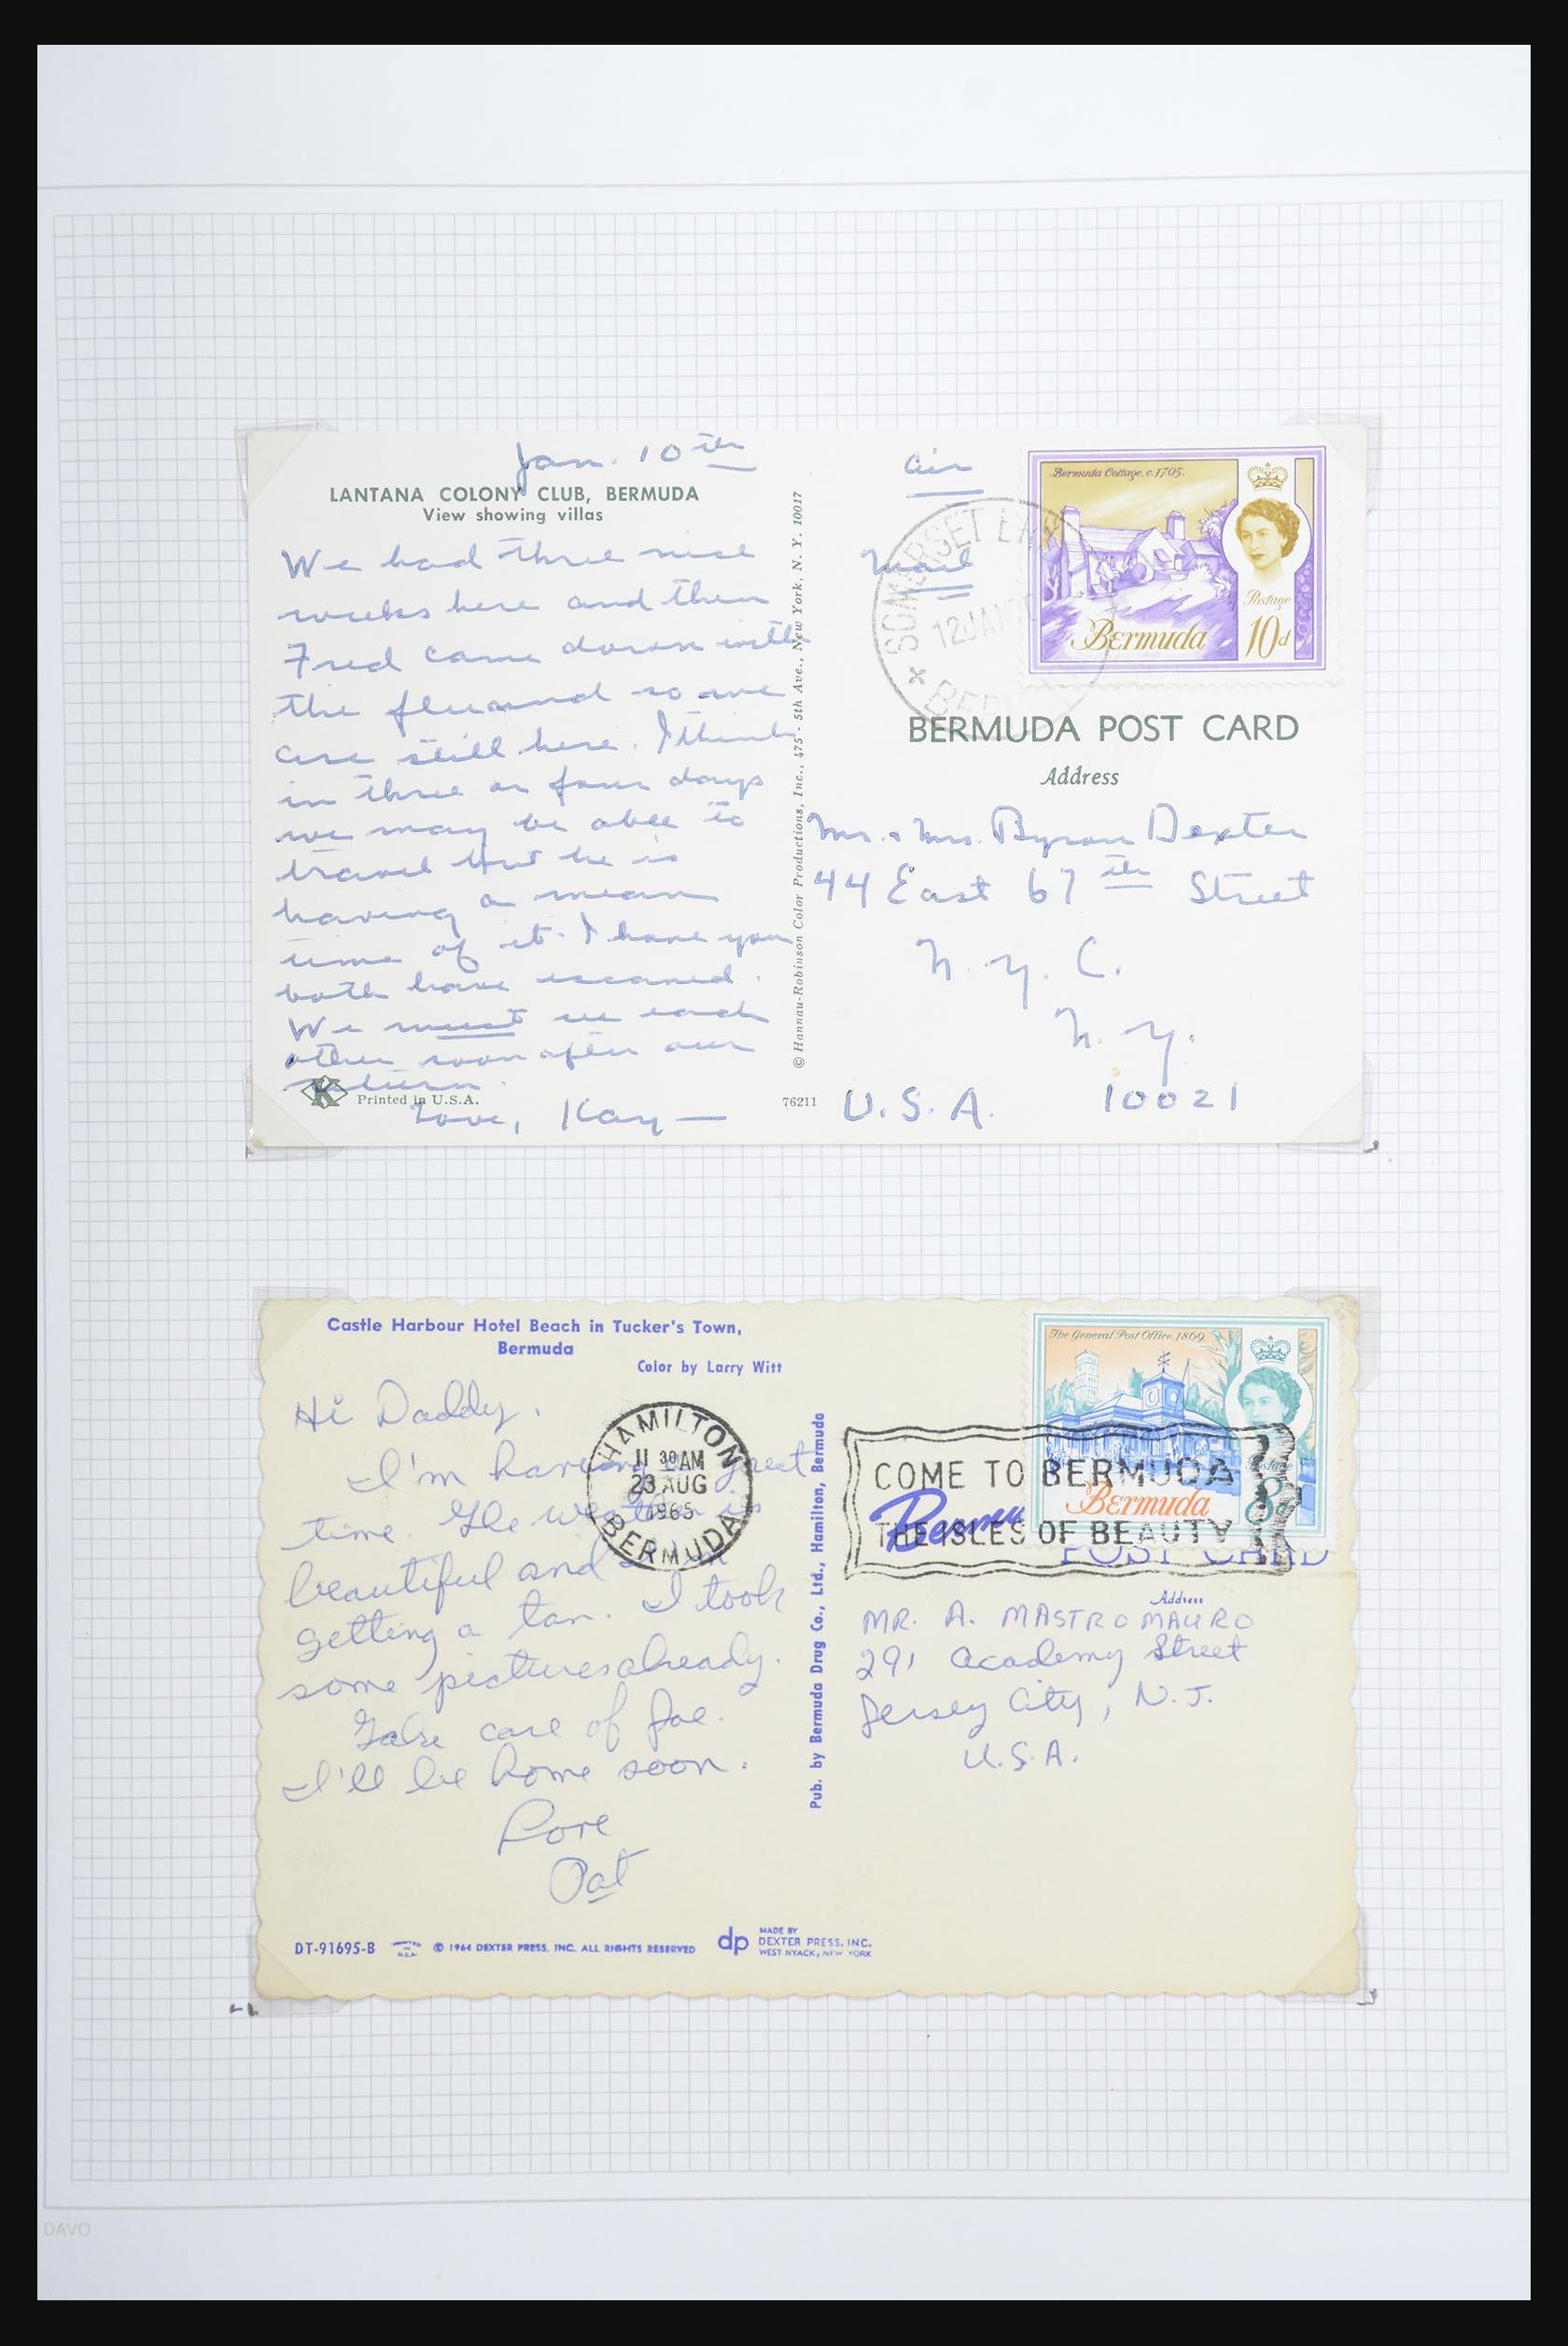 Jan. 10th
LANTANA COLONY CLUB, BERMUDA
View showing villas
We had three nice
weeks here and then
Fred came down with
the flu and so we
are still here. I think
in three or four days
we may be able to
travel but he is
having a mean
time of it. I hope you
both have escaped.
We must see each
other soon after our
return.
Love, Kay —
K
Printed in U.S.A.
76211
© Hannau-Robinson Color Productions, Inc., 475 - 5th Ave., New York, N. Y. 10017
Air
Mail
SOMERSET
12 JAN
BERM
Bermuda Cottage, c.1705.
Postage
Bermuda
10d
BERMUDA POST CARD
Address
Mr. & Mrs. Byron Dexter
44 East 67th Street
N. Y. C.
N. Y.
U. S. A. 10021
Castle Harbour Hotel Beach in Tucker's Town,
Bermuda
Color by Larry Witt
Hi Daddy,
I'm having a great
time. The weather is
beautiful and I'm
getting a tan. I took
some pictures already.
Take care of Joe.
I'll be home soon.
Love
Pat
HAMILTON
11 30 AM
23 AUG
1965
BERMUDA
DT-91695-B
PRINTED IN U.S.A.
© 1964 DEXTER PRESS, INC. ALL RIGHTS RESERVED
dp
MADE BY
DEXTER PRESS, INC.
WEST NYACK, NEW YORK
Pub. by Bermuda Drug Co., Ltd., Hamilton, Bermuda
The General Post Office, 1869
Postage
Bermuda
8d
COME TO BERMUDA
THE ISLES OF BEAUTY
POST CARD
Address
MR. A. MASTROMAURO
291 Academy Street
Jersey City, N.J.
U.S.A.
DAVO